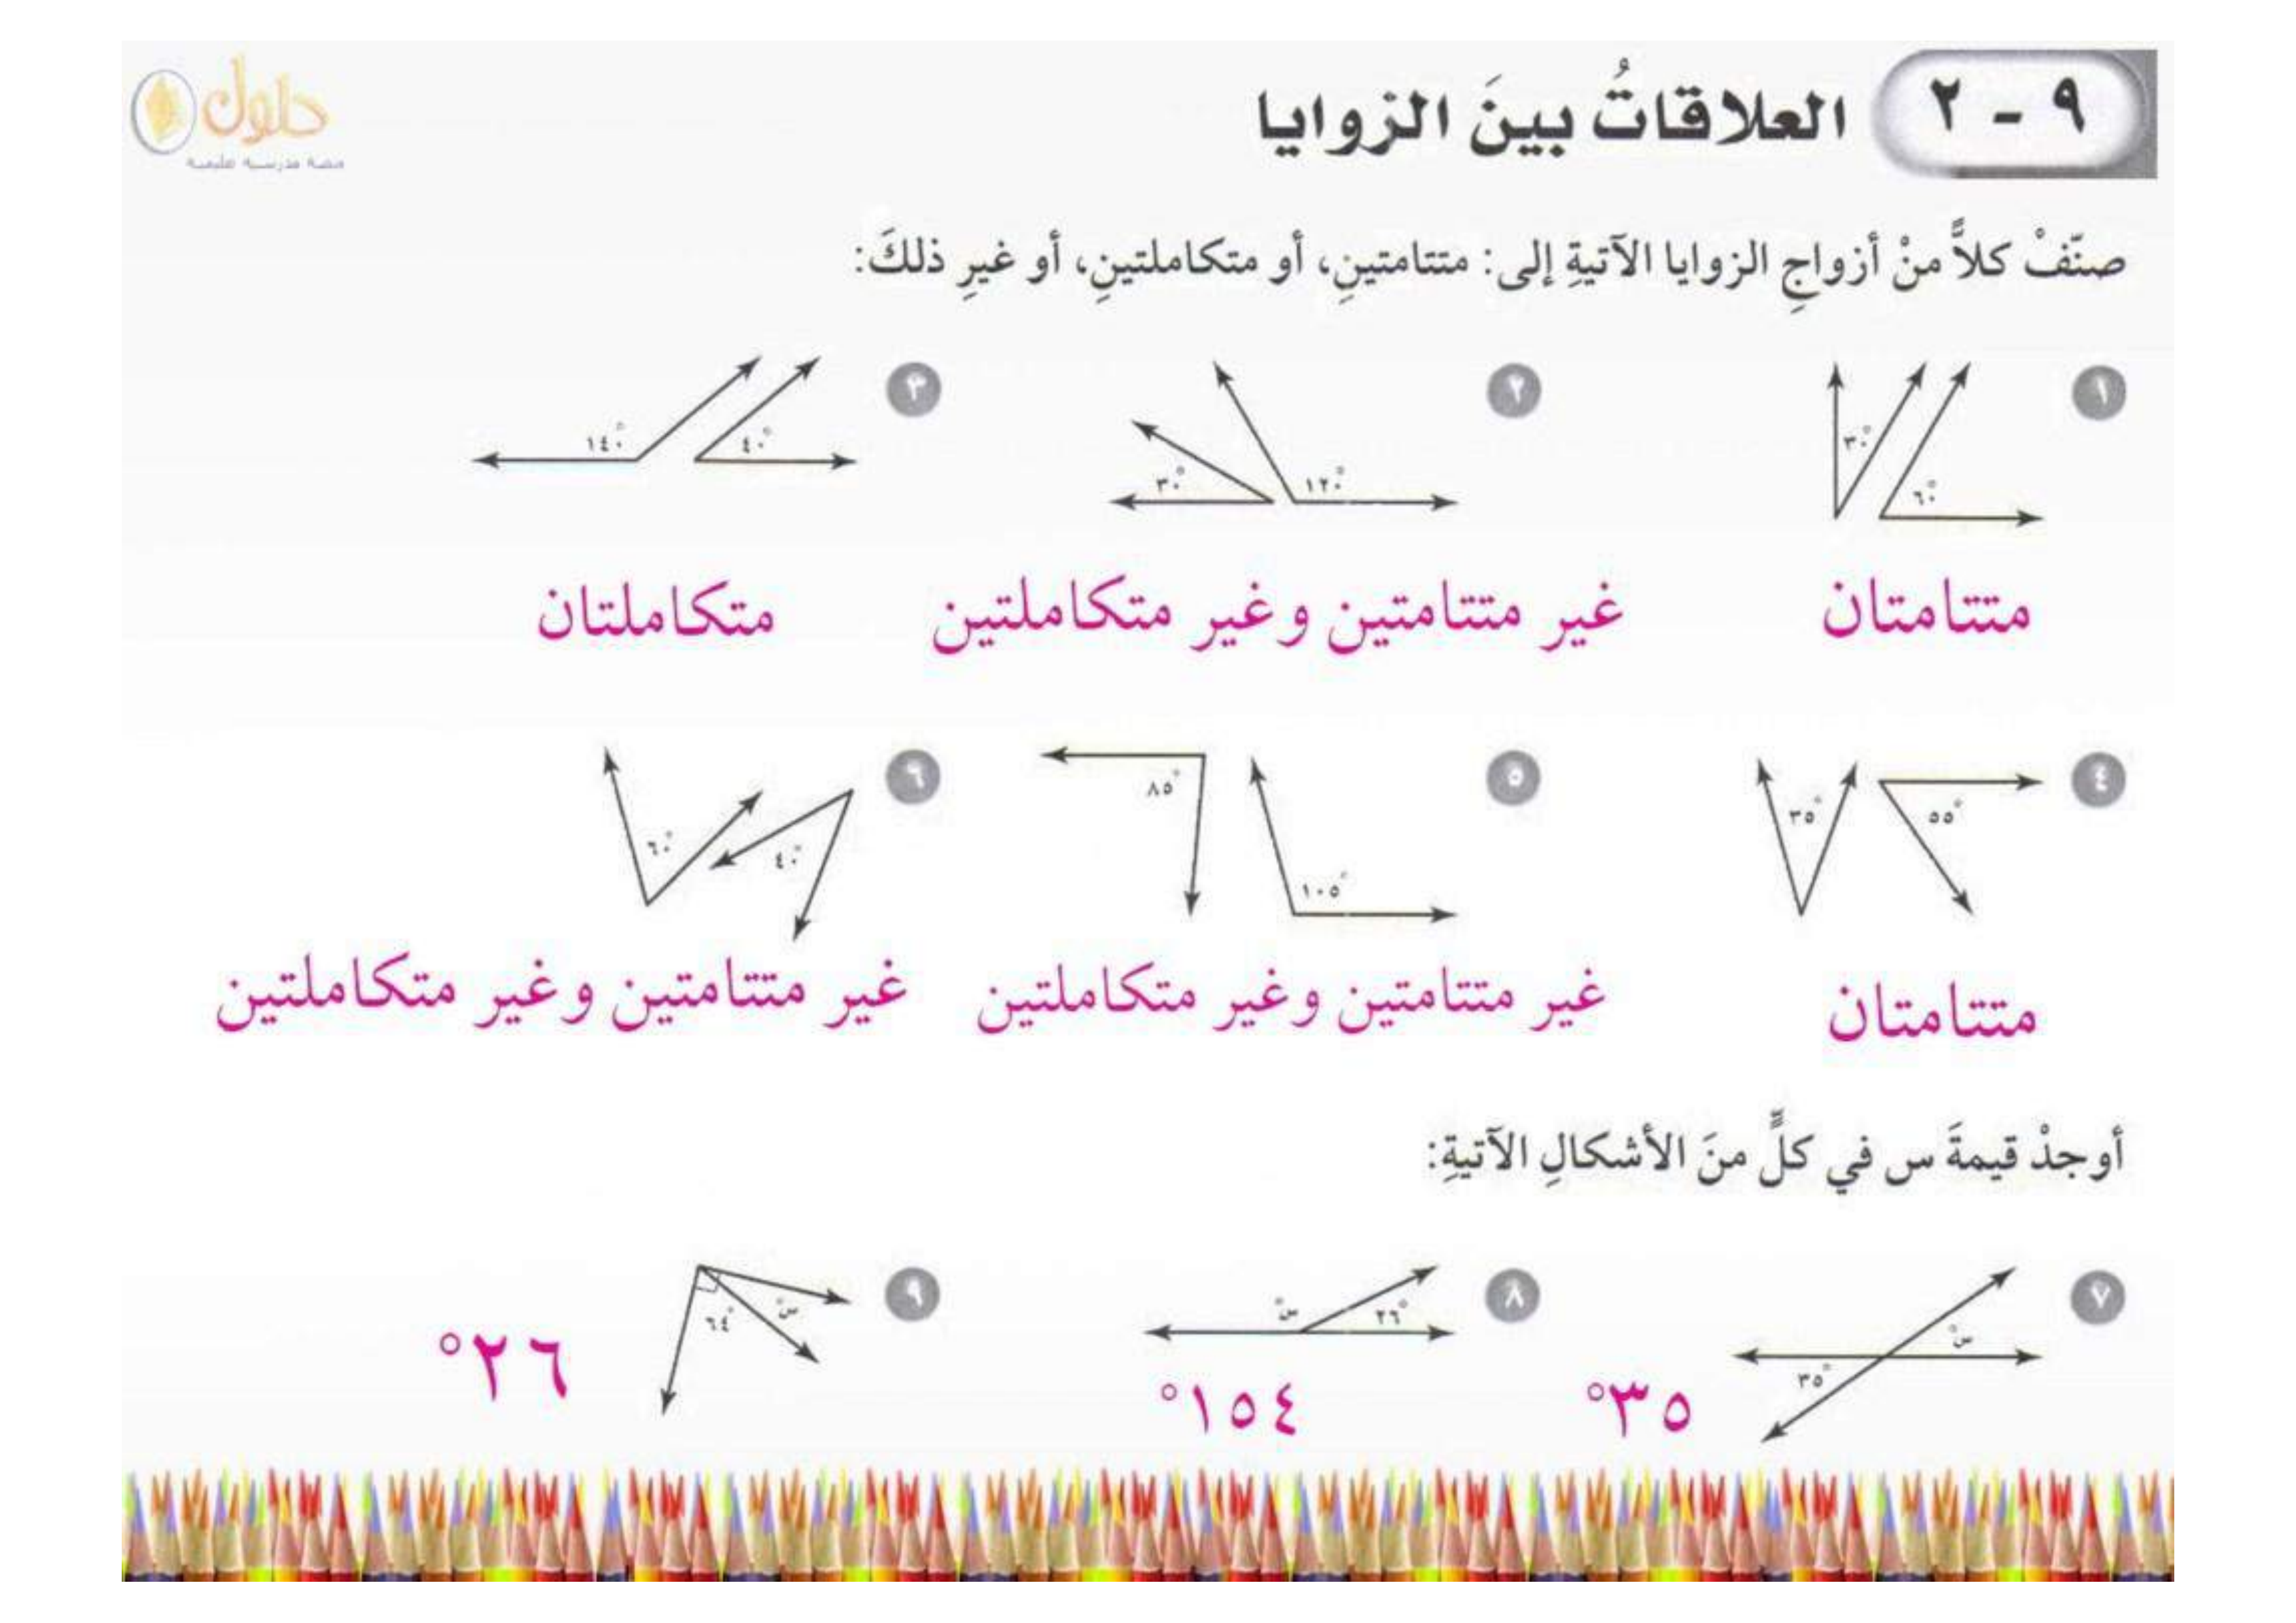 ٩ - ٢ العلاقاتُ بينَ الزوايا
حلول
منصة مدرسية تعليمية
صنّفْ كلاًّ منْ أزواجِ الزوايا الآتيةِ إلى: متتامتينِ، أو متكاملتينِ، أو غيرِ ذلكَ:
١ ٣٠° ٦٠°
٢ ٣٠° ١٢٠°
٣ ١٤٠° ٤٠°
متتامتان
غير متتامتين وغير متكاملتين
متكاملتان
٤ ٣٥° ٥٥°
٥ ٨٥° ١٠٥°
٦ ٦٠° ٤٠°
متتامتان
غير متتامتين وغير متكاملتين
غير متتامتين وغير متكاملتين
أوجدْ قيمةَ س في كلٍّ منَ الأشكالِ الآتيةِ:
٧ س° ٣٥°
٣٥°
٨ س° ٢٦°
١٥٤°
٩ س° ٦٤°
٢٦°